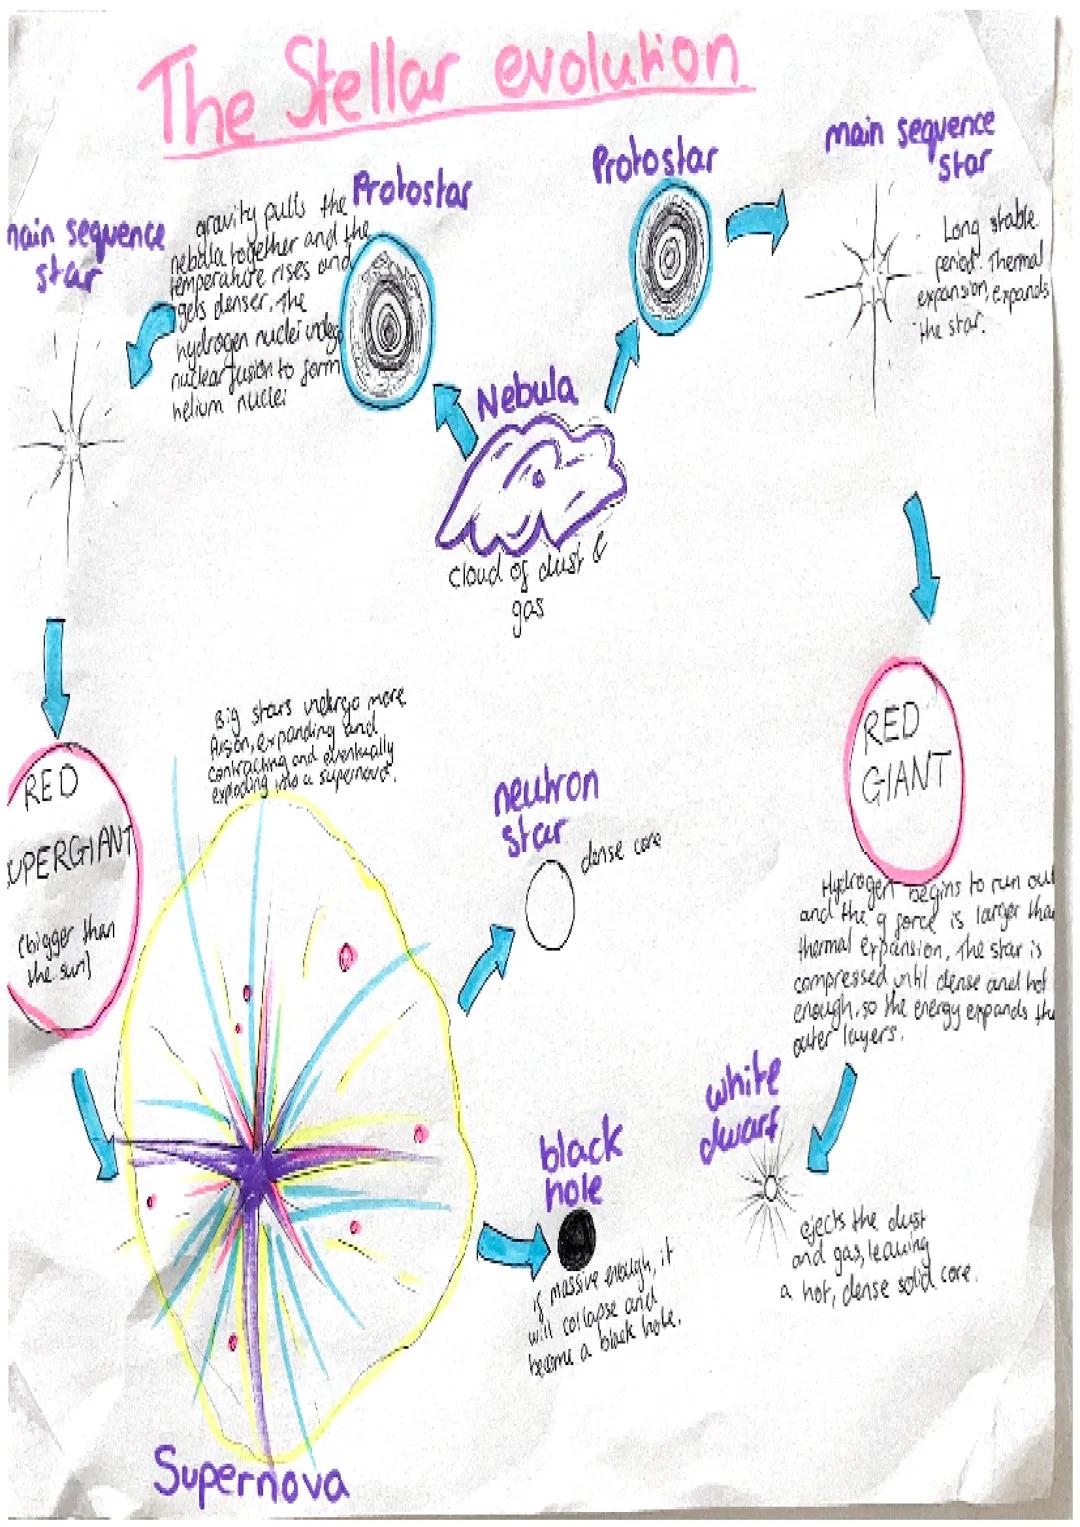 The Stellar evolution
Protostar
main sequence
star
Protostar
main sequence
star
gravity pulls the
nebula together and the
temperature rises and
gets denser. The
hydrogen nuclei
nuclear fusion to form
helium nuclei
Long stable
period. Thermal
expansion, expands
the star.
Nebula
cloud of dust &
gas
RED
GIANT
Hydrogen begins to run out
and the g force is larger than
thermal expansion, The star is
compressed until dense and hot
enough, so the energy expands the
outer layers.
white
dwarf
ejects the dust
and gas, leaving
a hot, dense solid core.
RED
SUPERGIANT
(bigger than
the sun)
Big stars undergo more
fusion, expanding and
contracting and eventually
exploding into a supernova.
Supernova
neutron
star
dense core
black
hole
if massive enough, it
will collapse and
become a black hole.